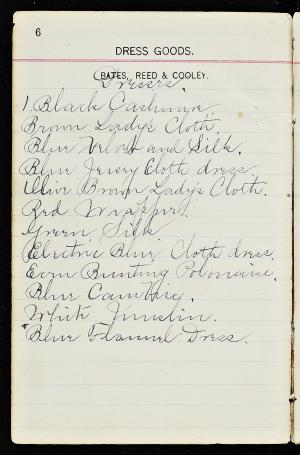 6
DRESS GOODS.
BATES, REED & COOLEY.
Dresses.
1. Black Cashmere
Brown Lady's Cloth.
Blue Velvet and Silk.
Blue Jersey Cloth dress.
Olive Brown Lady's Cloth.
Red Wrapper.
Green Silk
Electric Blue Cloth dress.
Ecru Bunting Polonaise.
Blue Cambric.
White Muslin.
Blue Flannel Dress.